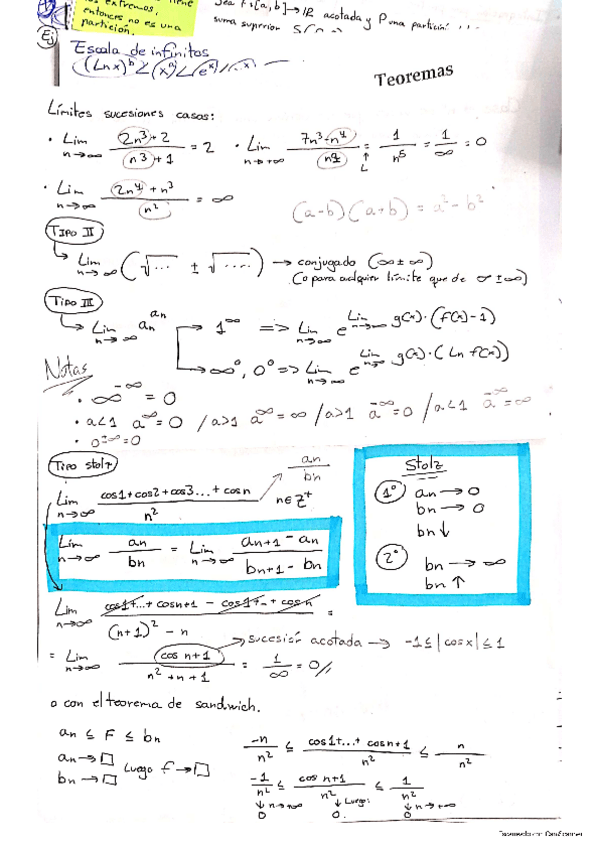 los extremos,
entonces no es una
partición.
Sea f:[a,b]→ℝ acotada y P una partición
suma superior
Ej
Escala de infinitos
(Ln x)^b < (x^a) < (e^x)
Teoremas
Límites sucesiones casos:
• Lim n→∞ (2n³+2)/(n³+1) = 2 • Lim n→+∞ (7n³-n⁴)/n⁹ = 1/n⁵ = 1/∞ = 0
• Lim n→∞ (2n⁴+n³)/n² = ∞
(a-b)(a+b) = a²-b²
TIPO II
Lim n→∞ (√.... ± √....) → conjugado (∞±∞)
(o para cualquier límite que de ∞±∞)
TIPO III
Lim n→∞ an^an → 1^∞ => Lim n→∞ e^(Lim n→∞ g(x)·(f(x)-1))
→ ∞⁰, 0⁰ => Lim n→∞ e^(Lim n→∞ g(x)·(Ln f(x)))
Notas
• ∞^-∞ = 0
• a<1 a^∞=0 / a>1 a^∞=∞ / a>1 a^-∞=0 / a<1 a^-∞=∞
TIPO stolz
an/bn
Lim n→∞ (cos1+cos2+cos3...+cosn)/n² n∈Z⁺
Lim n→∞ an/bn = Lim n→∞ (an+1 - an)/(bn+1 - bn)
Stolz
1º an → 0
bn → 0
bn ↓
2º bn → ∞
bn ↑
Lim n→∞ (cos1+...+cosn+1 - cos1+..+cosn)/((n+1)² - n) =
= Lim n→∞ (cos n+1)/(n²+n+1) = 1/∞ = 0//
→ sucesión acotada → -1≤|cosx|≤1
o con el teorema de sandwich.
an ≤ F ≤ bn
an → □
bn → □ Luego f → □
-n/n² ≤ (cos1+...+cosn+1)/n² ≤ n/n²
-1/n² ≤ (cos n+1)/n² ≤ 1/n²
↓n→+∞ ↓Luego: ↓n→+∞
0 0. 0
Escaneado con CamScanner